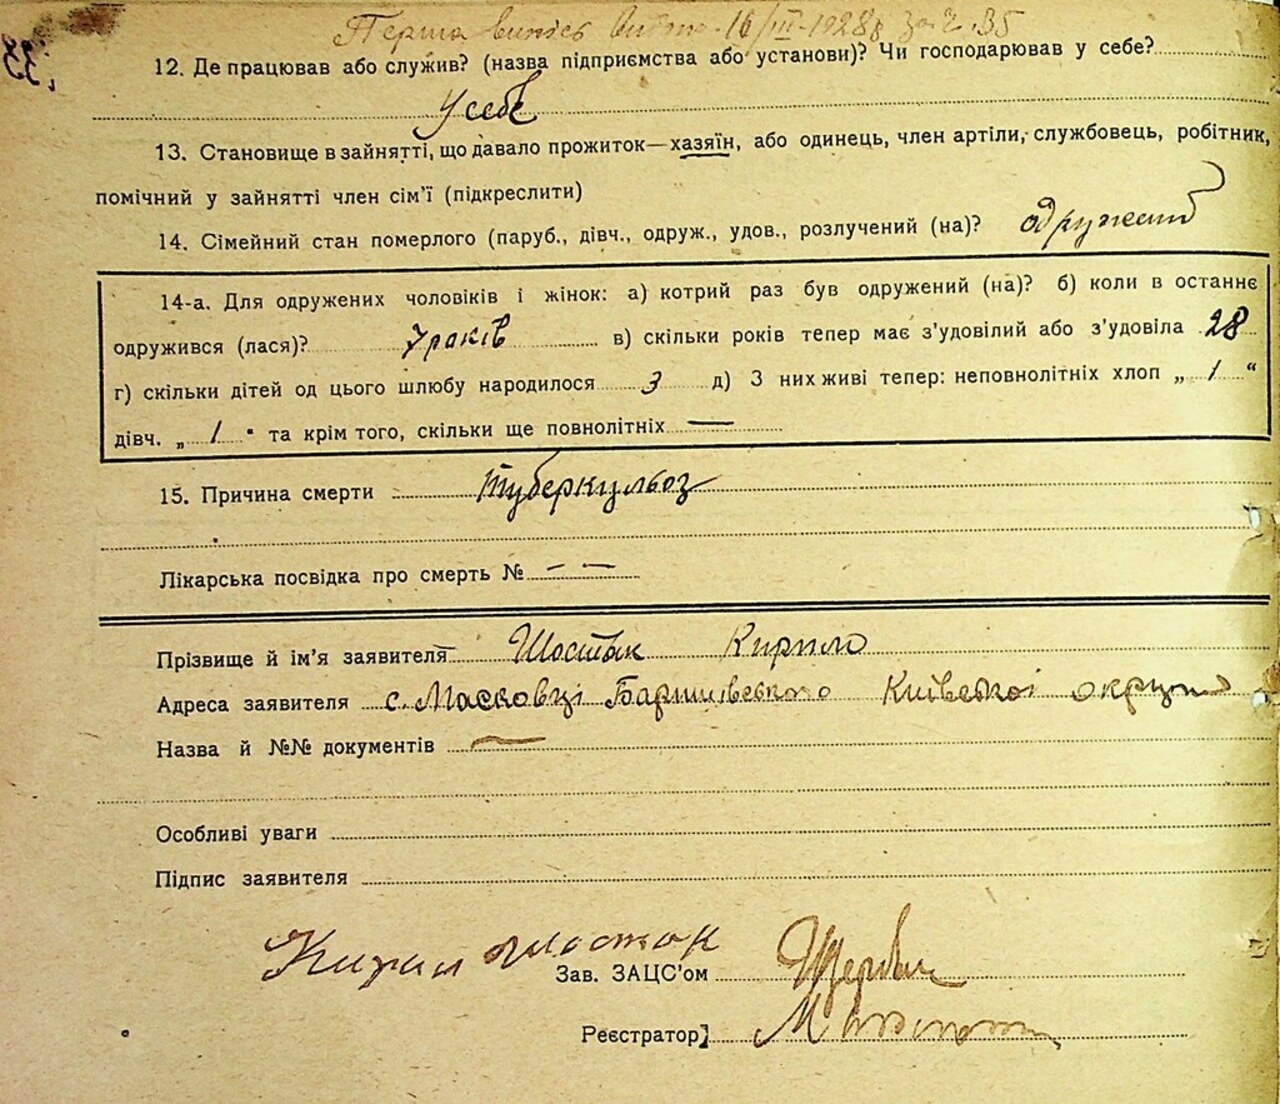 Перша випись видана 16/III-1928р за ч. 35
33
12. Де працював або служив? (назва підприємства або установи)? Чи господарював у себе?
У себе
13. Становище в зайнятті, що давало прожиток—хазяїн, або одинець, член артіли, службовець, робітник,
помічний у зайнятті член сім’ї (підкреслити)
14. Сімейний стан померлого (паруб., дівч., одруж., удов., розлучений (на)? одружений
14-а. Для одружених чоловіків і жінок: а) котрий раз був одружений (на)? б) коли в останнє
одружився (лася)? 7 років в) скільки років тепер має з’удовілий або з’удовіла 28
г) скільки дітей од цього шлюбу народилося 3 д) З них живі тепер: неповнолітніх хлоп „ 1 “
дівч. „ 1 “ та крім того, скільки ще повнолітніх —
15. Причина смерти туберкульоз
Лікарська посвідка про смерть № — —
Прізвище й ім’я заявителя Шостак Кирило
Адреса заявителя с. Масковці Баришівського Київської округи
Назва й №№ документів —
Особливі уваги
Підпис заявителя
Кирил Шостак
Зав. ЗАЦС’ом
Реєстратор